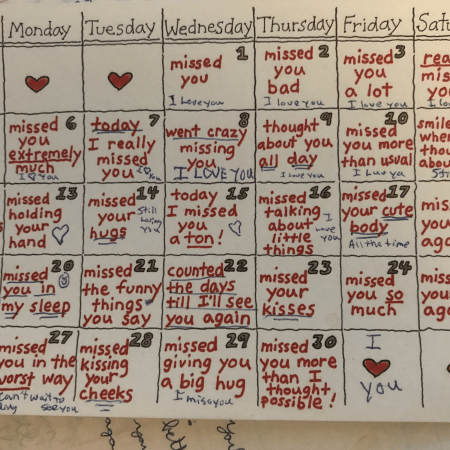 Monday Tuesday Wednesday Thursday Friday
1
missed
you
I Love you
2
missed
you
bad
I love you
3
missed
you
a lot
I love you
6
missed
you
extremely
much
I ♡ you
7
today
I really
missed
you
8
went crazy
missing
you
I LOVE YOU
9
thought
about you
all day
I love you
10
missed
you more
than usual
I Luv you
13
missed
holding
your
hand ♡
14
missed
your
hugs
Still
you
15
today
I missed
you
a ton! ♡
16
missed
talking
about
little
things
I
love
you
17
missed
your cute
body
All the time
20
missed
you in
my sleep
21
missed
the funny
things
you say
22
counted
the days
till I'll see
you again
23
missed
your
kisses
24
missed
you so
much
27
missed
you in the
worst way
can't wait to
see you
28
missed
kissing
your
cheeks
29
missed
giving you
a big hug
I miss you
30
missed
you more
than I
thought
possible!
I
♥
you